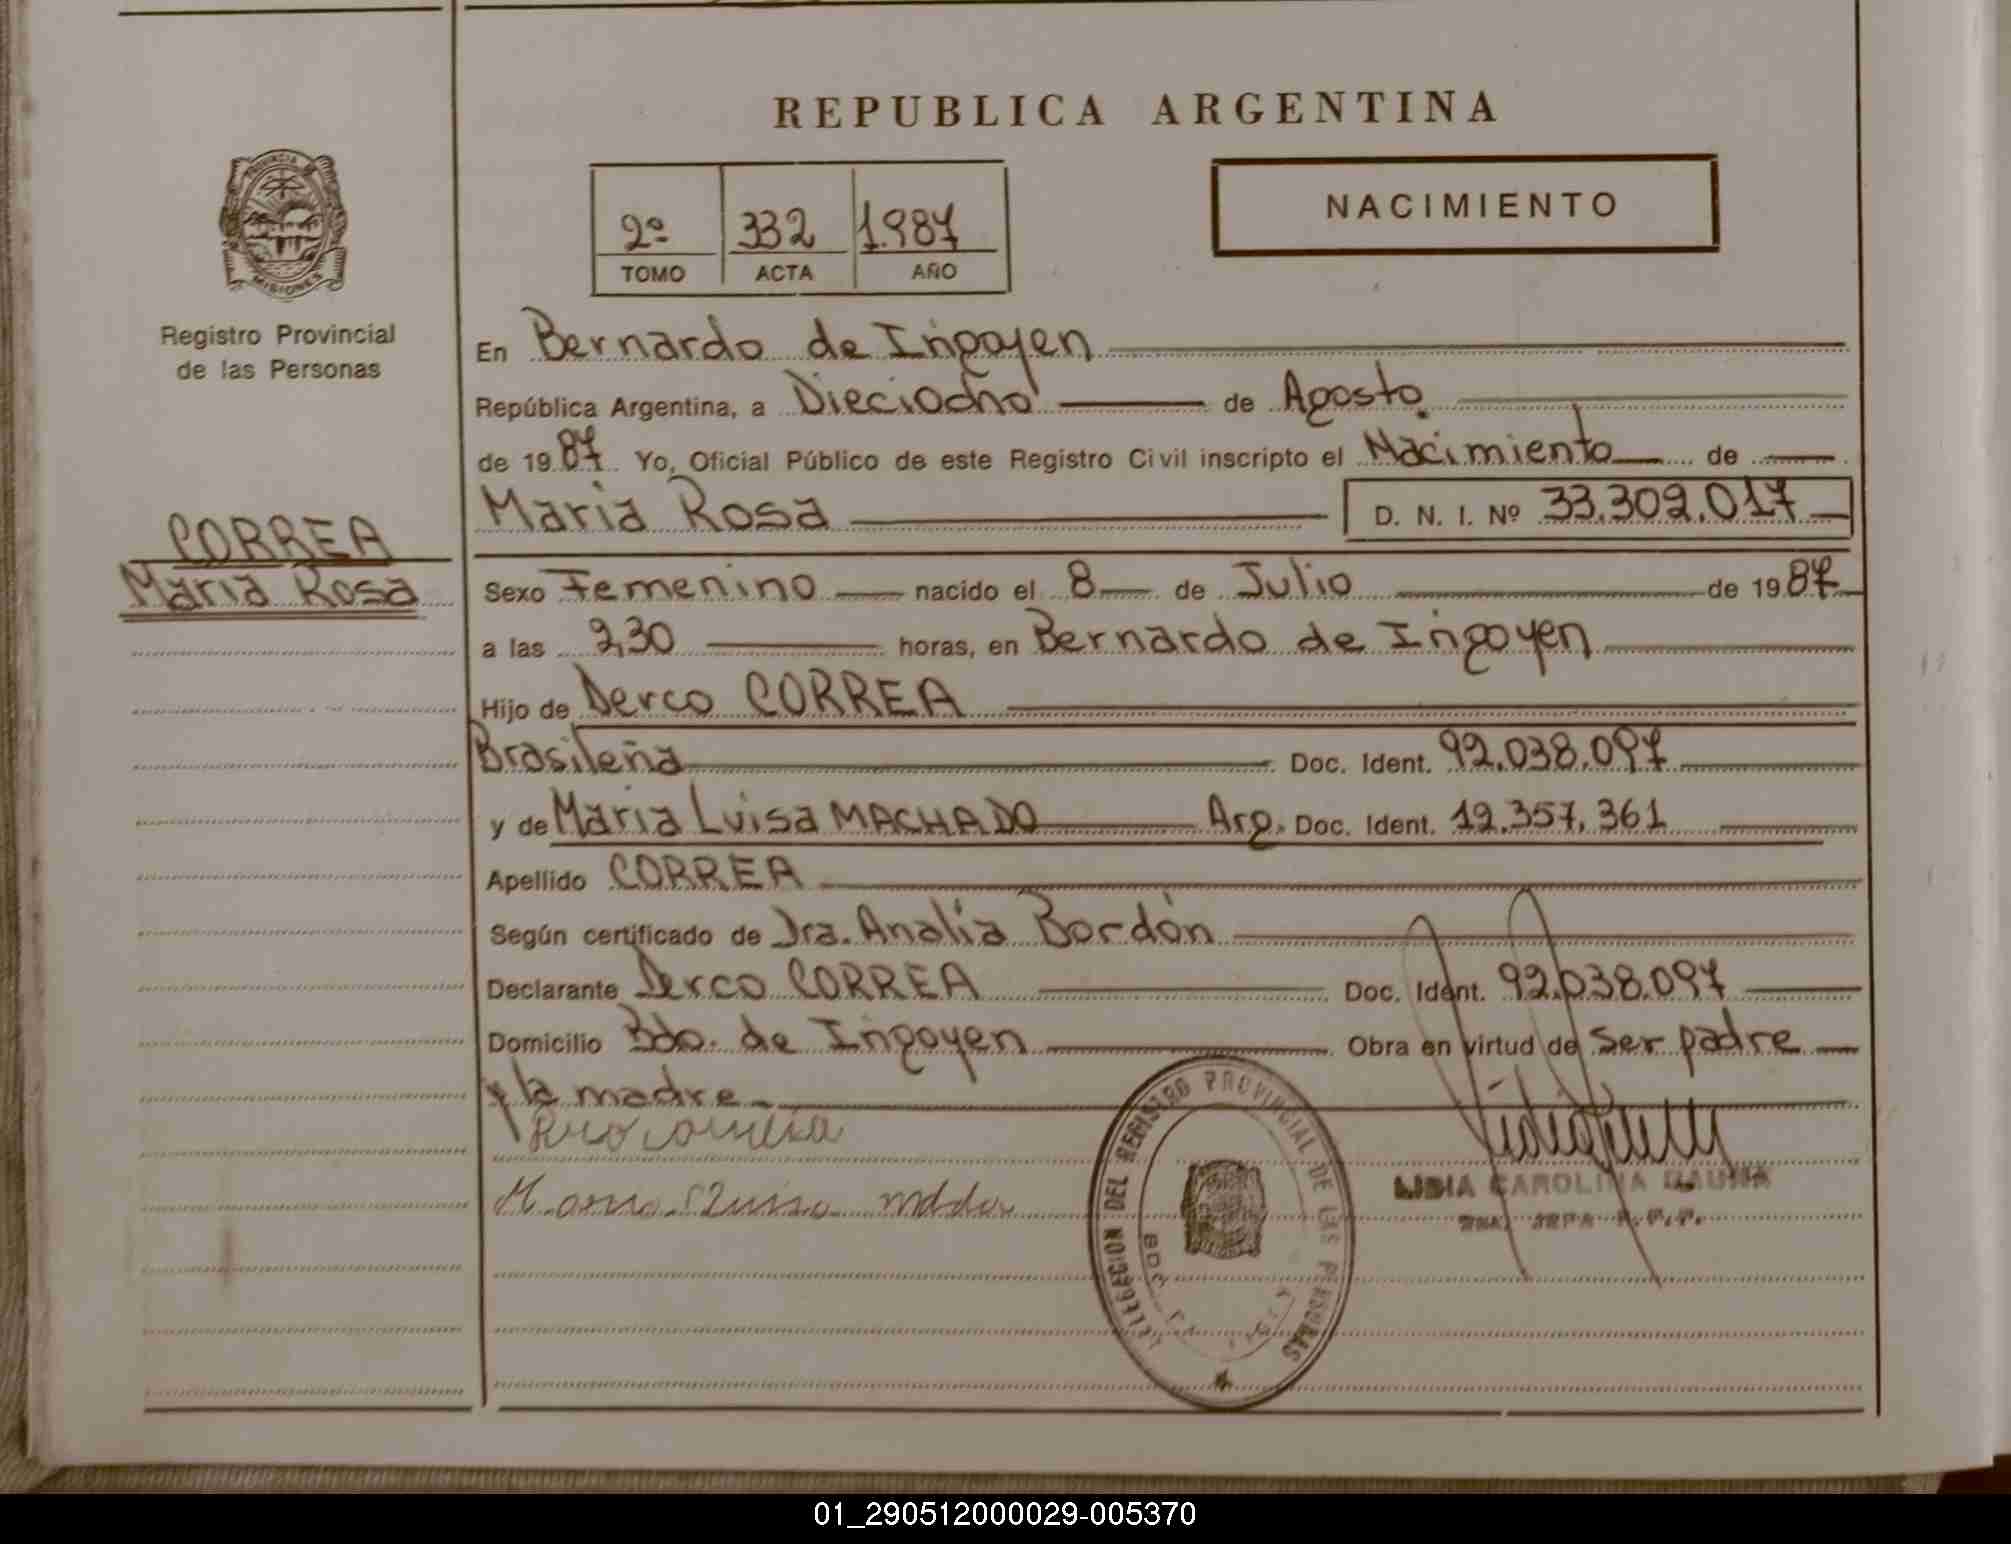 REPUBLICA ARGENTINA
PROVINCIA DE
MISIONES
Registro Provincial
de las Personas
2º 332 1.987
TOMO ACTA AÑO
NACIMIENTO
En Bernardo de Irigoyen
República Argentina, a Dieciocho de Agosto.
de 1987 Yo, Oficial Público de este Registro Civil inscripto el Nacimiento de
Maria Rosa D. N. I. Nº 33.309.017
CORREA
Maria Rosa
Sexo Femenino nacido el 8 de Julio de 1987
a las 2,30 horas, en Bernardo de Irigoyen
Hijo de Derco CORREA
Brasileña Doc. Ident. 92.038.097
y de Maria Luisa MACHADO Arg. Doc. Ident. 12.357.361
Apellido CORREA
Según certificado de Dra. Analía Bordón
Declarante Derco CORREA Doc. Ident. 92.038.097
Domicilio Bdo. de Irigoyen Obra en virtud de ser padre
y la madre.
DELEGACION DEL REGISTRO PROVINCIAL DE LAS PERSONAS
LIDIA CAROLINA
01_290512000029-005370